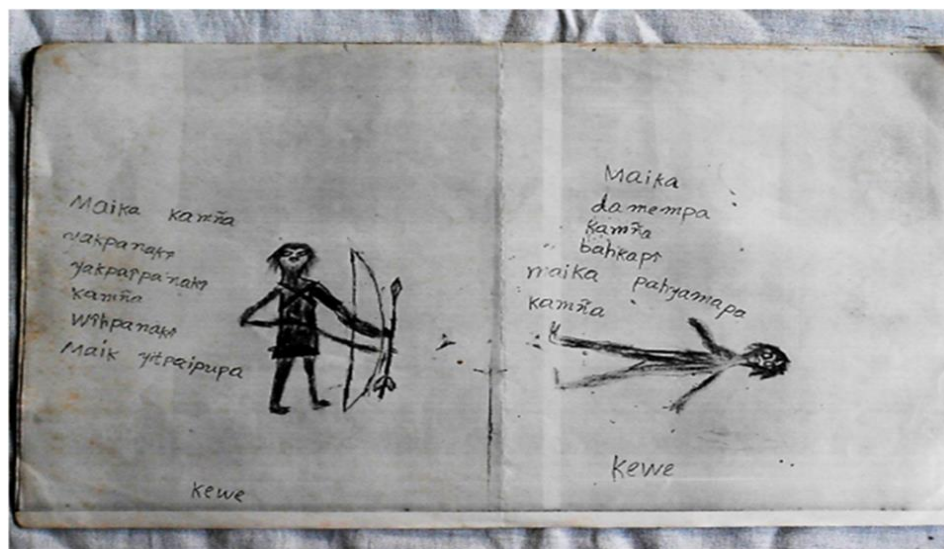 Maika kamña
yakpanakɨ
yakpaɨpanakɨ
kamña
Wɨhpanakɨ
Maik yɨtpaipupa
kewe
Maika
damempa
kamña
bahkapɨ
maika pahyamapa
kamña
kewe